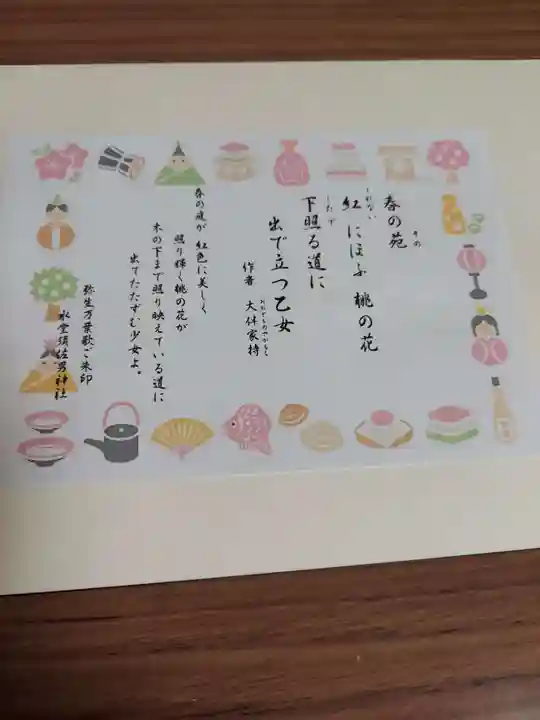 春の苑
その
紅 にほふ 桃の花
くれない
下照る道に
したで
出で立つ乙女
作者 大伴家持
おおとものやかもち
春の庭が 紅色に美しく
照り輝く桃の花が
木の下まで照り映えている道に
出てたたずむ少女よ。
弥生万葉歌ご朱印
氷室須佐男神社